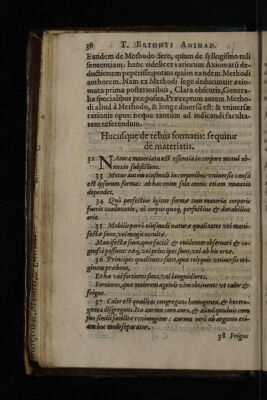 38 T. BRIGHTI ANIMAD.
Eandem de Methodo fero, quam de syllogismo tuli
sententiam: hanc videlicet variorum Axiomatũ de-
ductionem peperisse, potius quàm eandem Methodi
authorem. Nam ex Methodi lege deducuntur axio-
mata prima posterioribus, Clara obscuris, Genera-
lia specialibus præposita. Præceptum autem Metho-
di aliud à Methodo, & longe diuersũ est: & vniuersæ
rationis opus: neque tantùm ad indicandi faculta-
tem referendum.
Hucusque de rebus formatis: sequitur
de materiatis.
32 Natura materiata est essentia in corpore motui ob-
noxio subsistens.
33 Motus autem eiusmodi in corporibus vniuersis causa
est ipsorum forma: ab hac enim sola omnis etiam mutatio
dependet.
34 Quò perfectior igitur forma cum materia corporis
fuerit coadunatio, eò corpus quoq; perfectius & durabilius
erit.
35 Mobilis porrò eiusmodi naturæ qualitates vel mani-
festæ sunt, vel magis occultæ.
Manifestæ sunt, quæ facilè & euidenter obseruari & co-
gnosci possunt: eæq; vel principes sunt, vel ab his ortæ.
36 Principes qualitates sunt, quæ reliquis vniuersis ori-
ginem præbent.
Et hæ vel fortiores sunt, vel languidiores.
Fortiores, quæ maiorem agendi vim obtinent: vt calor &
frigus.
37 Calor est qualitas congregans homogenea, & hetero-
genea disgregans. Ita aurum cum auro, & aliud quoduis cum
suo simili faciliùs coniungitur: aurum verò ab argento eti-
am hoc modo separatur.
38 Frigus